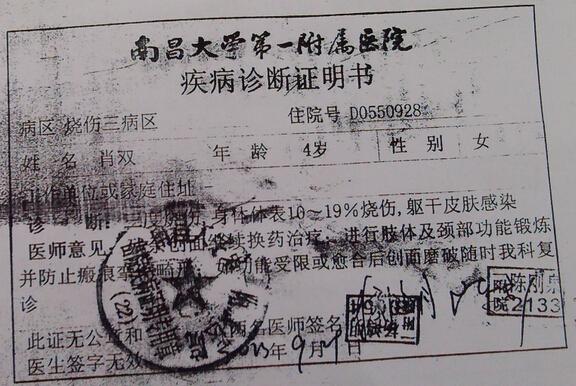 南昌大学第一附属医院
疾病诊断证明书
病区 烧伤三病区 住院号 D0550928
姓 名 肖双 年 龄 4岁 性 别 女
工作单位或家庭住址
诊 断: 三度烧伤,身体体表10~19%烧伤,躯干皮肤感染
医师意见: 创面继续换药治疗, 进行肢体及颈部功能锻炼
并防止瘢痕挛 畸形, 如功能受限或愈合后创面磨破随时我科复
诊
此证无公章和 两名医师签名
医生签字无效 年9月
陈刚泉
院2133